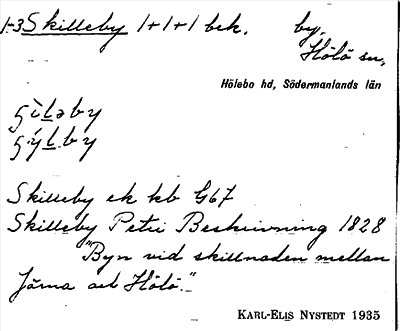 1-3 Skilleby 1+1+1 bek. by,
Hölö sn,
Hölebo hd, Södermanlands län
Skilleby ek kb G67
Skilleby Petri Beskrivning 1828
"Byn vid skillnaden mellan
Järna och Hölö."
KARL-ELIS NYSTEDT 1935